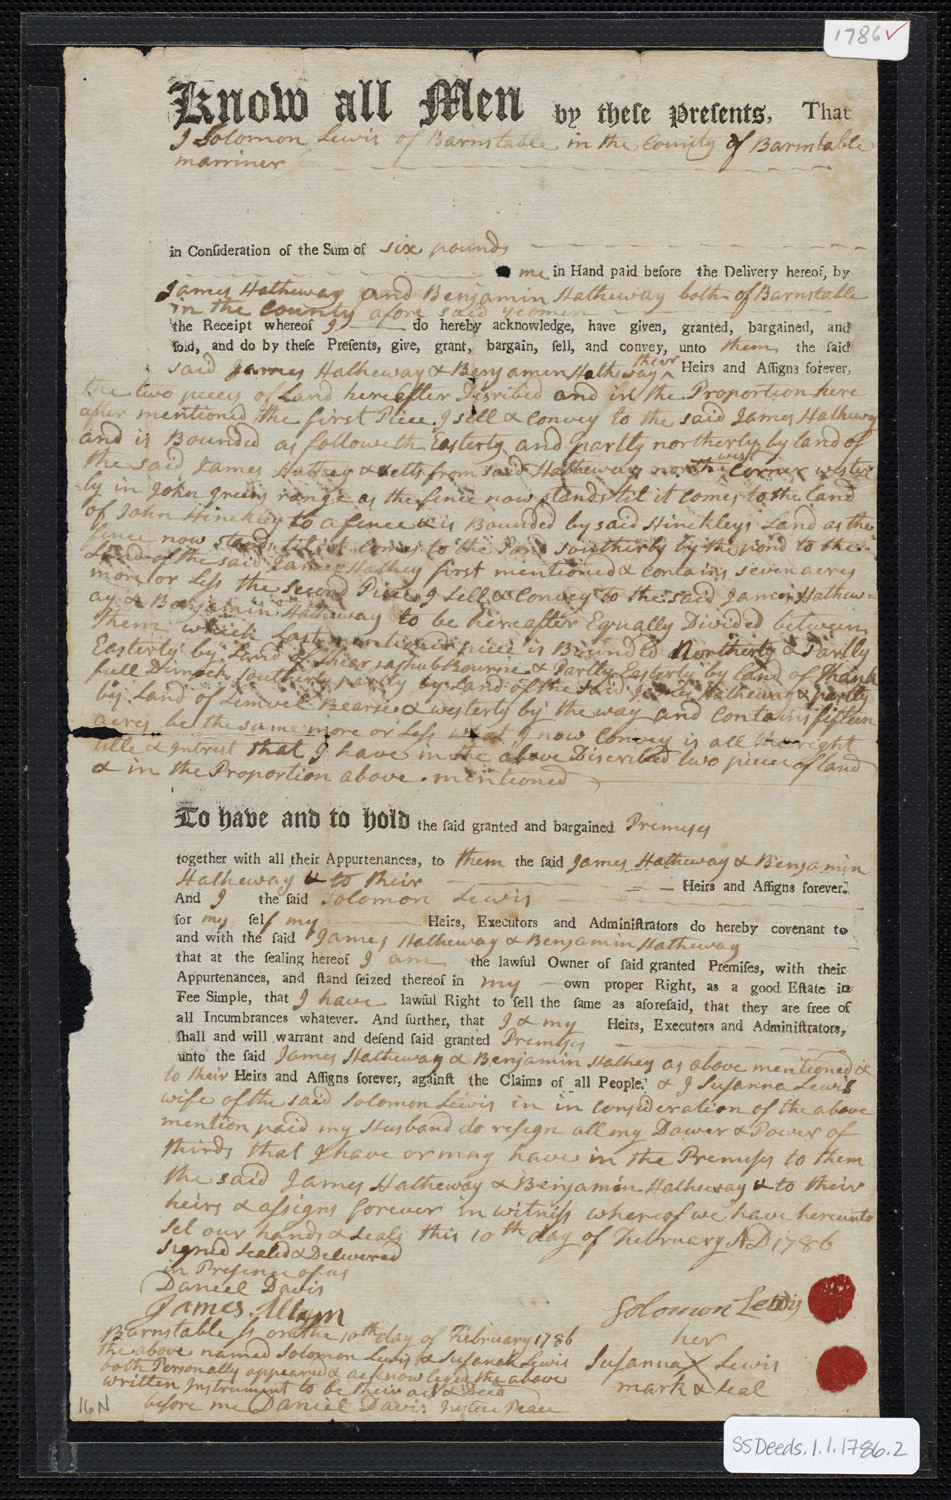 1786✓
Know all Men by theſe Preſents, That
I Solomon Lewis of Barnstable in the County of Barnstable
marriner
in Conſideration of the Sum of six pounds
me in Hand paid before the Delivery hereof, by
James Hatheway and Benjamin Hatheway both of Barnstable
in the County afore said yeomen
the Receipt whereof I do hereby acknowledge, have given, granted, bargained, and
ſold, and do by theſe Preſents, give, grant, bargain, ſell, and convey, unto them the ſaid
said James Hatheway & Benjamen Hatheway their Heirs and Aſſigns forever,
the two pieces of Land hereafter Discribed and in the Proportion here
after mentioned the first Piece I sell & Convey to the said James Hathewy
and is Bounded as followeth Easterly and partly northerly by land of
the said James Hathey & setts from said Hatheways north west Corner wester
ly in John Greens range as the fence now stands til it comes to the land
of John Hinckley to a fence & is Bounded by said Hinckleys Land as the
fence now stands til it comes to the Pond southerly by the pond to the
Land of the said James Hathey first mentioned & Contains seven acres
more or Less the second Piece I sell & Convey to the said James Hathew=
ay & Benjamin Hatheway to be hereafter Equally Divided between
them which Last mentioned piece is Bounded Northerly & Partly
Easterly by Land of Bourne & Partly Easterly by land of Thank
full Dimock southerly partly by Land of the said James Hatheway & partly
by Land of Lemuel Bearse & westerly by the way and Contains fifteen
acres be the same more or Less what I now Convey is all the right
title & Intrest that I have in the above Discribed two piece of land
& in the Proportion above mentioned
To have and to hold the ſaid granted and bargained Premises
together with all their Appurtenances, to them the ſaid James Hatheway & Benjamin
Hatheway & to their Heirs and Aſſigns forever.
And I the ſaid Solomon Lewis
for my ſelf my Heirs, Executors and Adminiſtrators do hereby covenant to
and with the ſaid James Hatheway & Benjamin Hatheway
that at the ſealing hereof I am the lawful Owner of ſaid granted Premiſes, with their
Appurtenances, and ſtand ſeized thereof in my own proper Right, as a good Eſtate in
Fee Simple, that I have lawful Right to ſell the ſame as aforeſaid, that they are free of
all Incumbrances whatever. And further, that I & my Heirs, Executors and Adminiſtrators,
ſhall and will warrant and defend ſaid granted Premises
unto the ſaid James Hatheway & Benjamin Hathey as above mentioned &
to their Heirs and Aſſigns forever, againſt the Claims of all People. & I Susanna Lewis
wife of the said Solomon Lewis in in Consideration of the above
mention paid my Husband do resign all my Dower & Power of
thirds that I have or may have in the Premises to them
the said James Hatheway & Benjamin Hatheway & to their
heirs & assigns forever in witness whereof we have hereunto
set our hands & seals this 10th day of February AD 1786
Signed sealed & Delivered
in Presence of us
Daniel Davis
James Allyn
Solomon Lewis
her
Susanna X Lewis
mark & seal
Barnstable Ss on the 10th day of February 1786
the above named Solomon Lewis & Susanah Lewis
both Personally appeared & acknowleged the above
written Instrument to be their act & Deed
before me Daniel Davis Justice Peace
16N
SSDeeds.1.1.1786.2